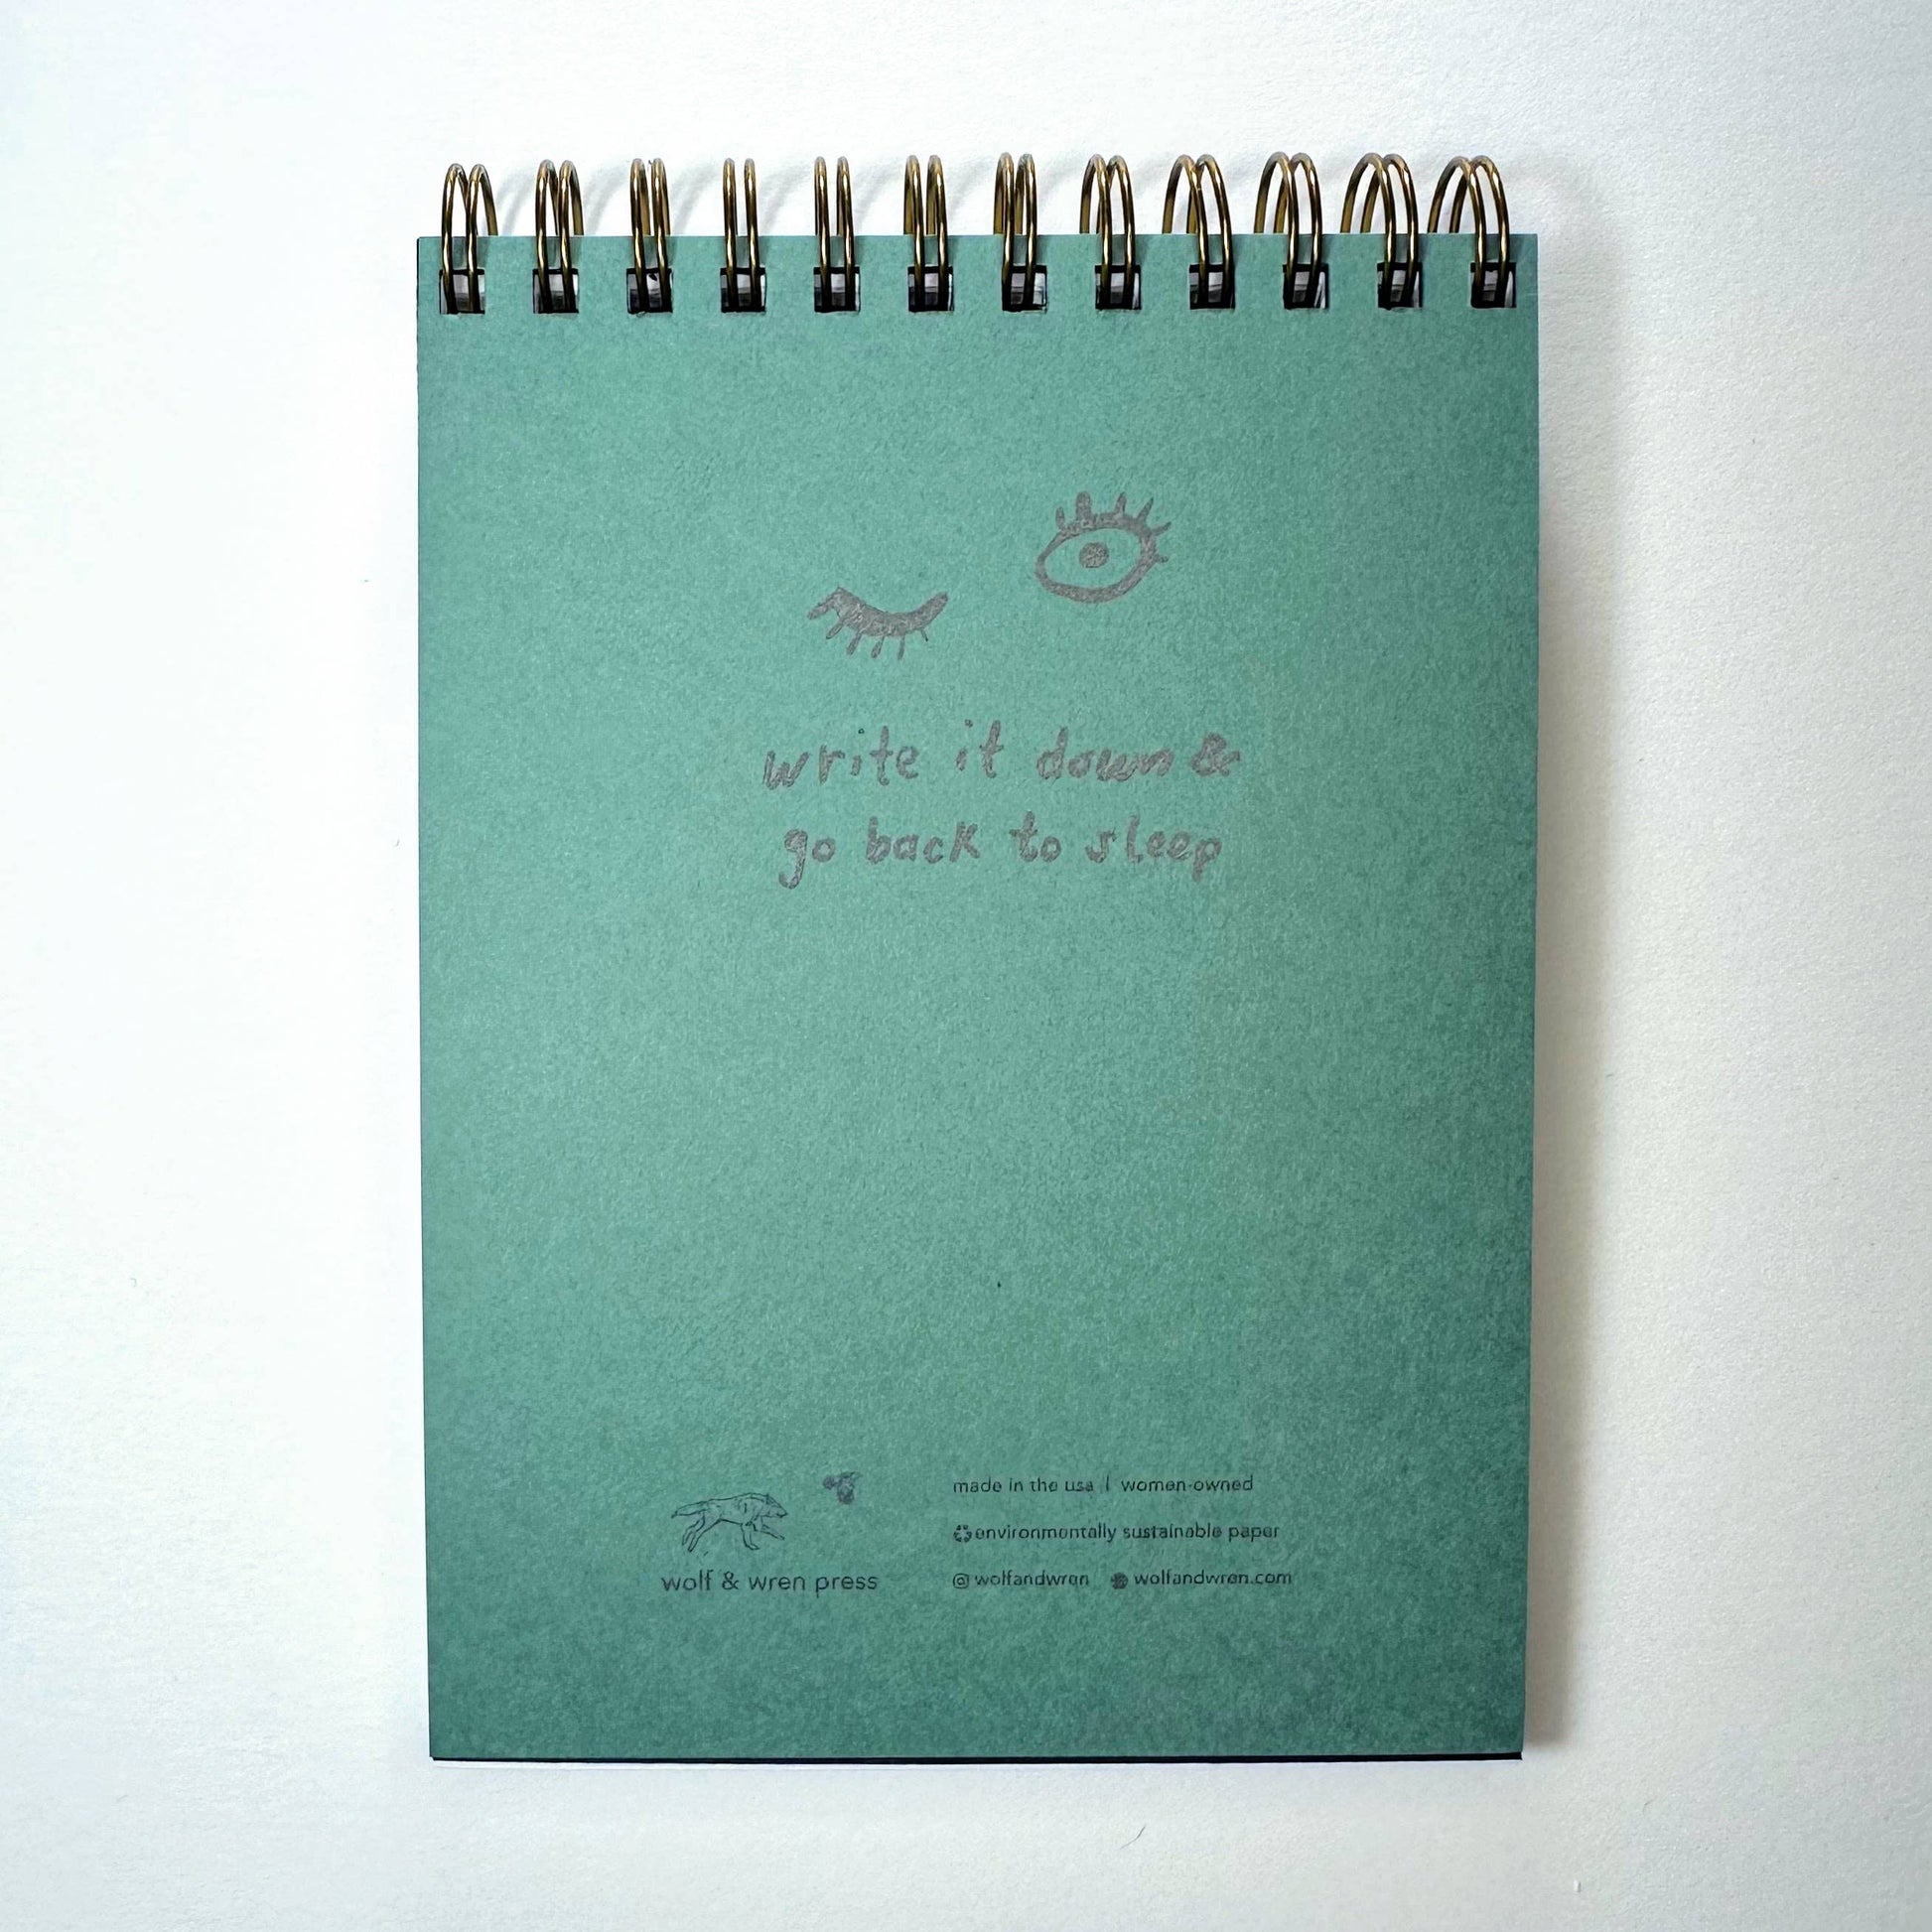 write it down &
go back to sleep
wolf & wren press
made in the usa | women-owned
environmentally sustainable paper
@wolfandwren wolfandwren.com